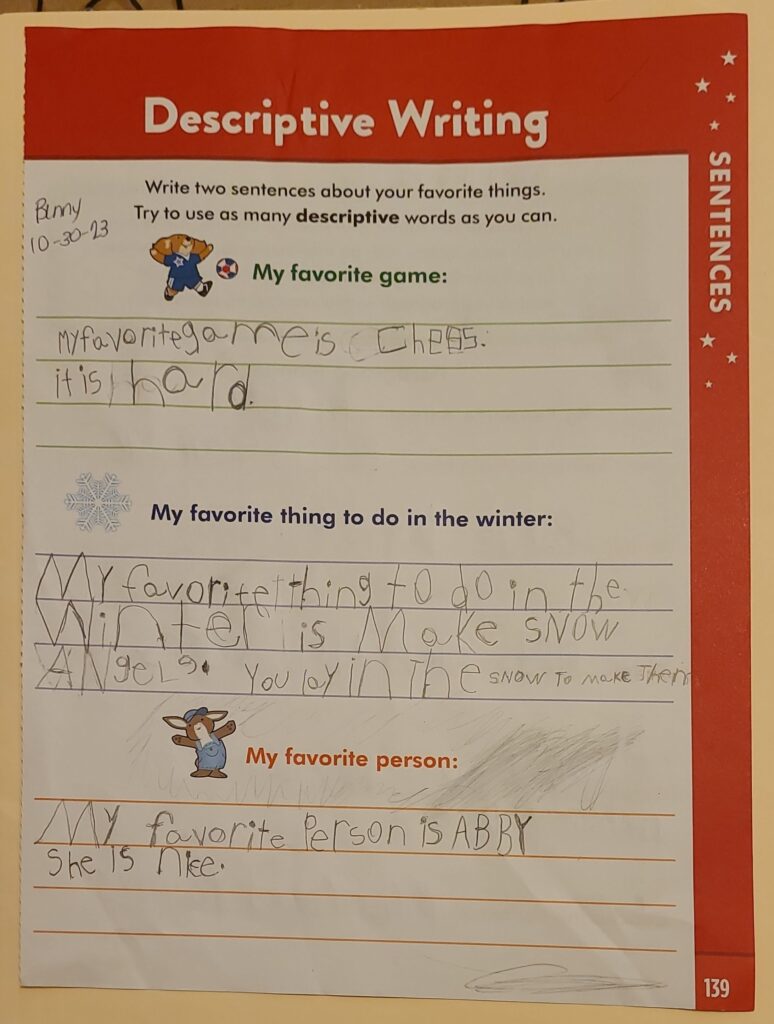 Descriptive Writing
SENTENCES
Write two sentences about your favorite things.
Try to use as many descriptive words as you can.
Benny
10-30-23
My favorite game:
My favorite game is Chess.
it is hard.
My favorite thing to do in the winter:
My favorite thing to do in the
Winter is Make SNOW
ANgeLs. You lay in The SNOW TO MAKE Them
My favorite person:
My favorite Person is ABBY
She is nice.
139